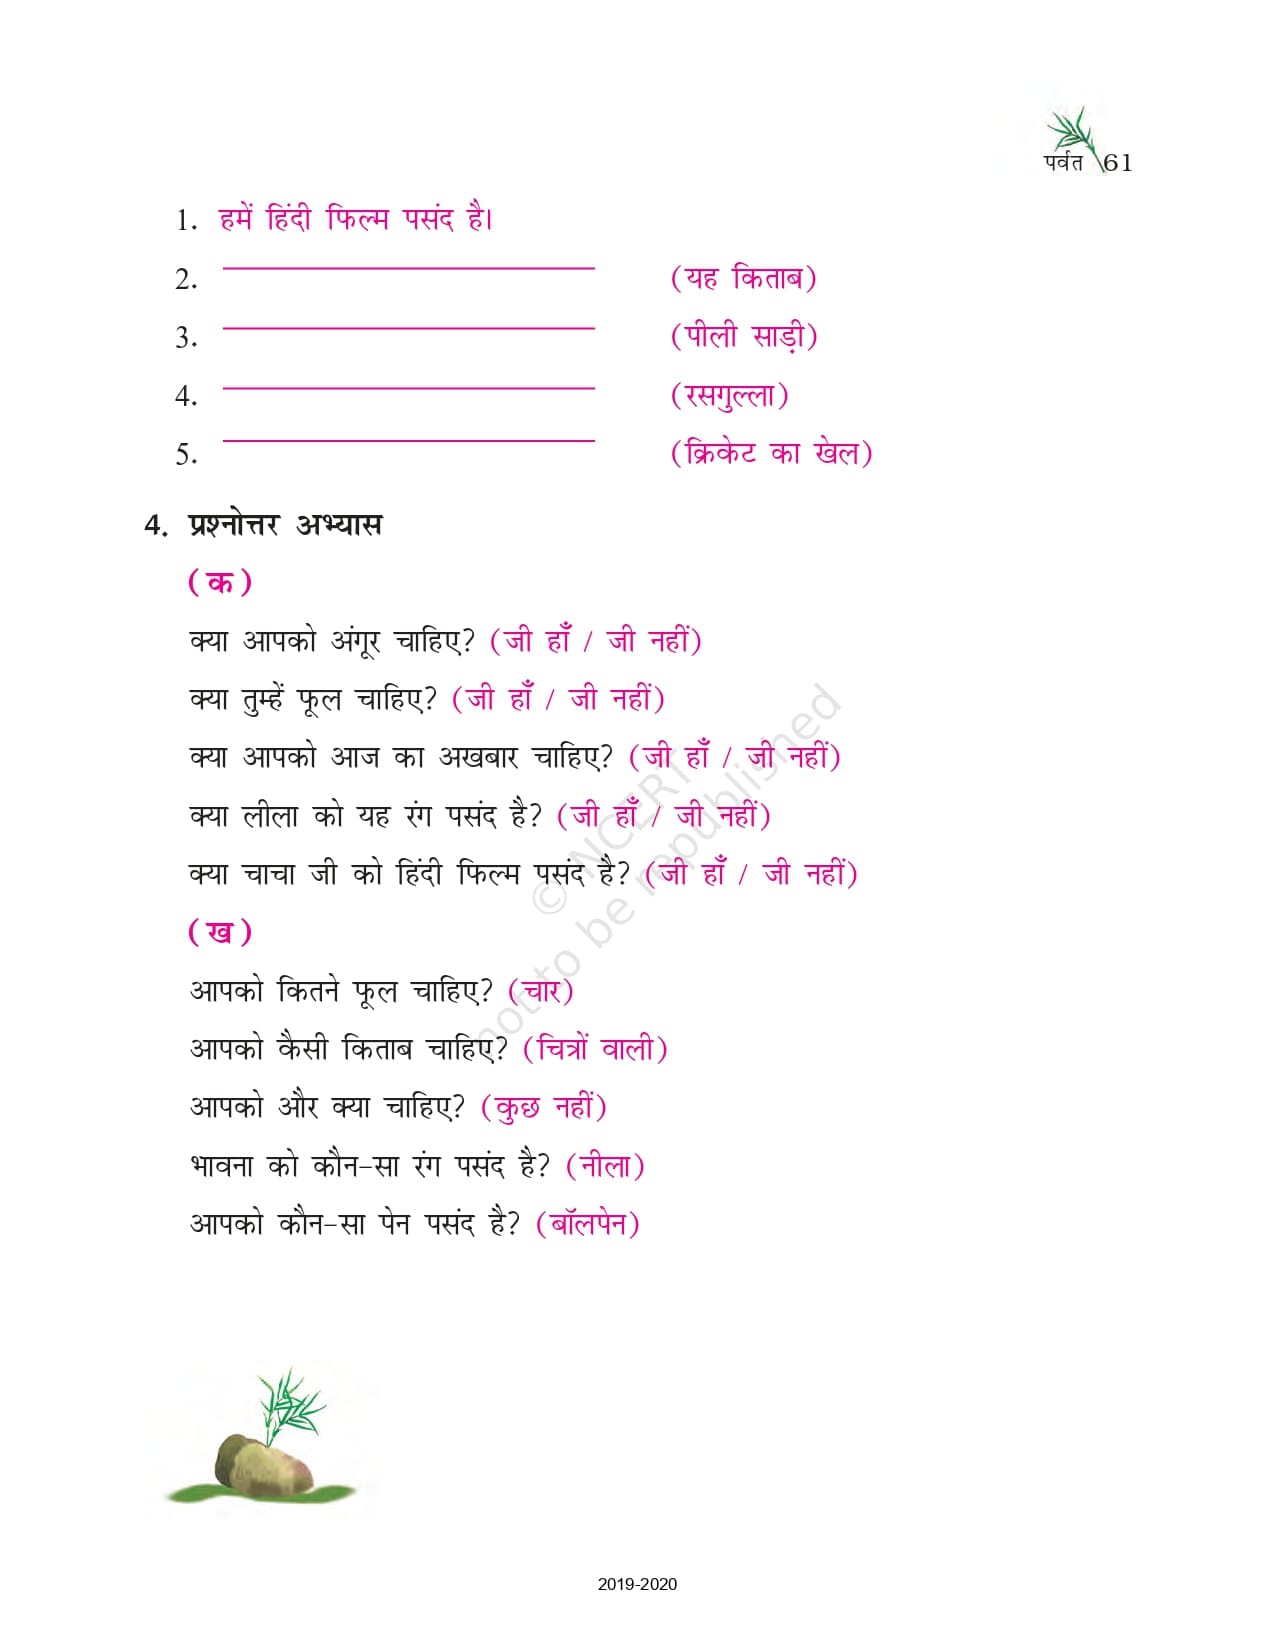 पर्वत 61
1. हमें हिंदी फिल्म पसंद है।
2. (यह किताब)
3. (पीली साड़ी)
4. (रसगुल्ला)
5. (क्रिकेट का खेल)
4. प्रश्नोत्तर अभ्यास
(क)
क्या आपको अंगूर चाहिए? (जी हाँ / जी नहीं)
क्या तुम्हें फूल चाहिए? (जी हाँ / जी नहीं)
क्या आपको आज का अखबार चाहिए? (जी हाँ / जी नहीं)
क्या लीला को यह रंग पसंद है? (जी हाँ / जी नहीं)
क्या चाचा जी को हिंदी फिल्म पसंद है? (जी हाँ / जी नहीं)
(ख)
आपको कितने फूल चाहिए? (चार)
आपको कैसी किताब चाहिए? (चित्रों वाली)
आपको और क्या चाहिए? (कुछ नहीं)
भावना को कौन-सा रंग पसंद है? (नीला)
आपको कौन-सा पेन पसंद है? (बॉलपेन)
© NCERT
not to be republished
2019-2020